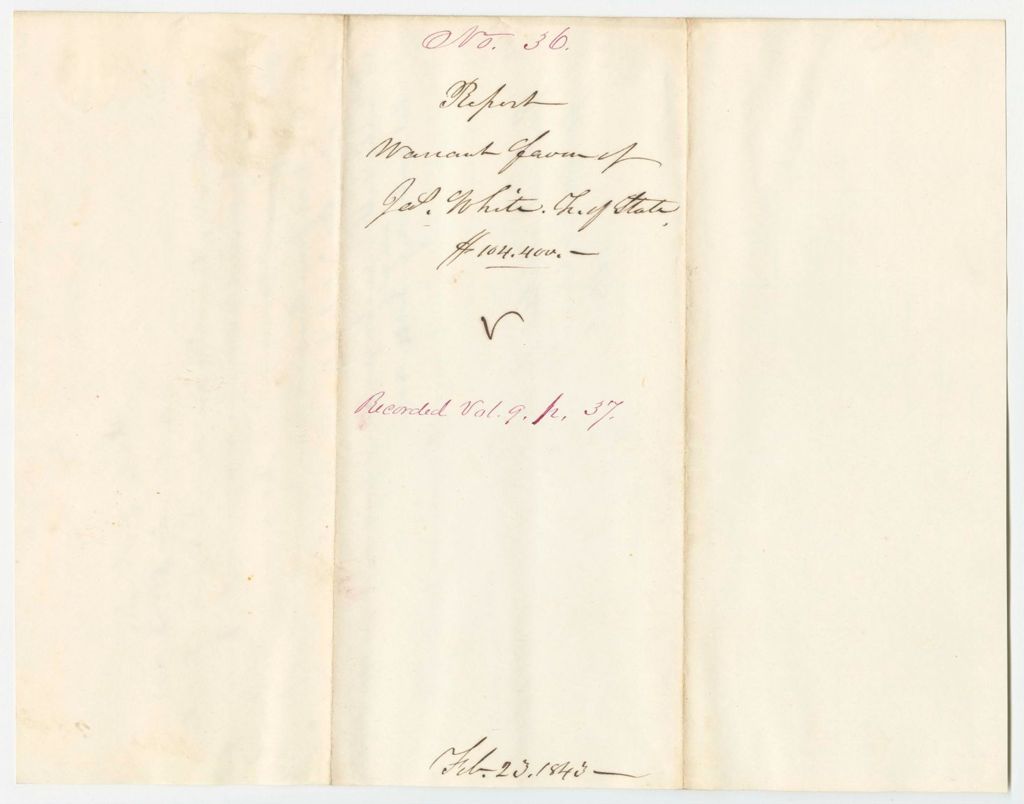 No. 36.
Report
Warrant favor of
Jas. White. Tr. of State,
$104.400.—
V
Recorded Vol. 9. p. 37.
Feb. 23. 1843—